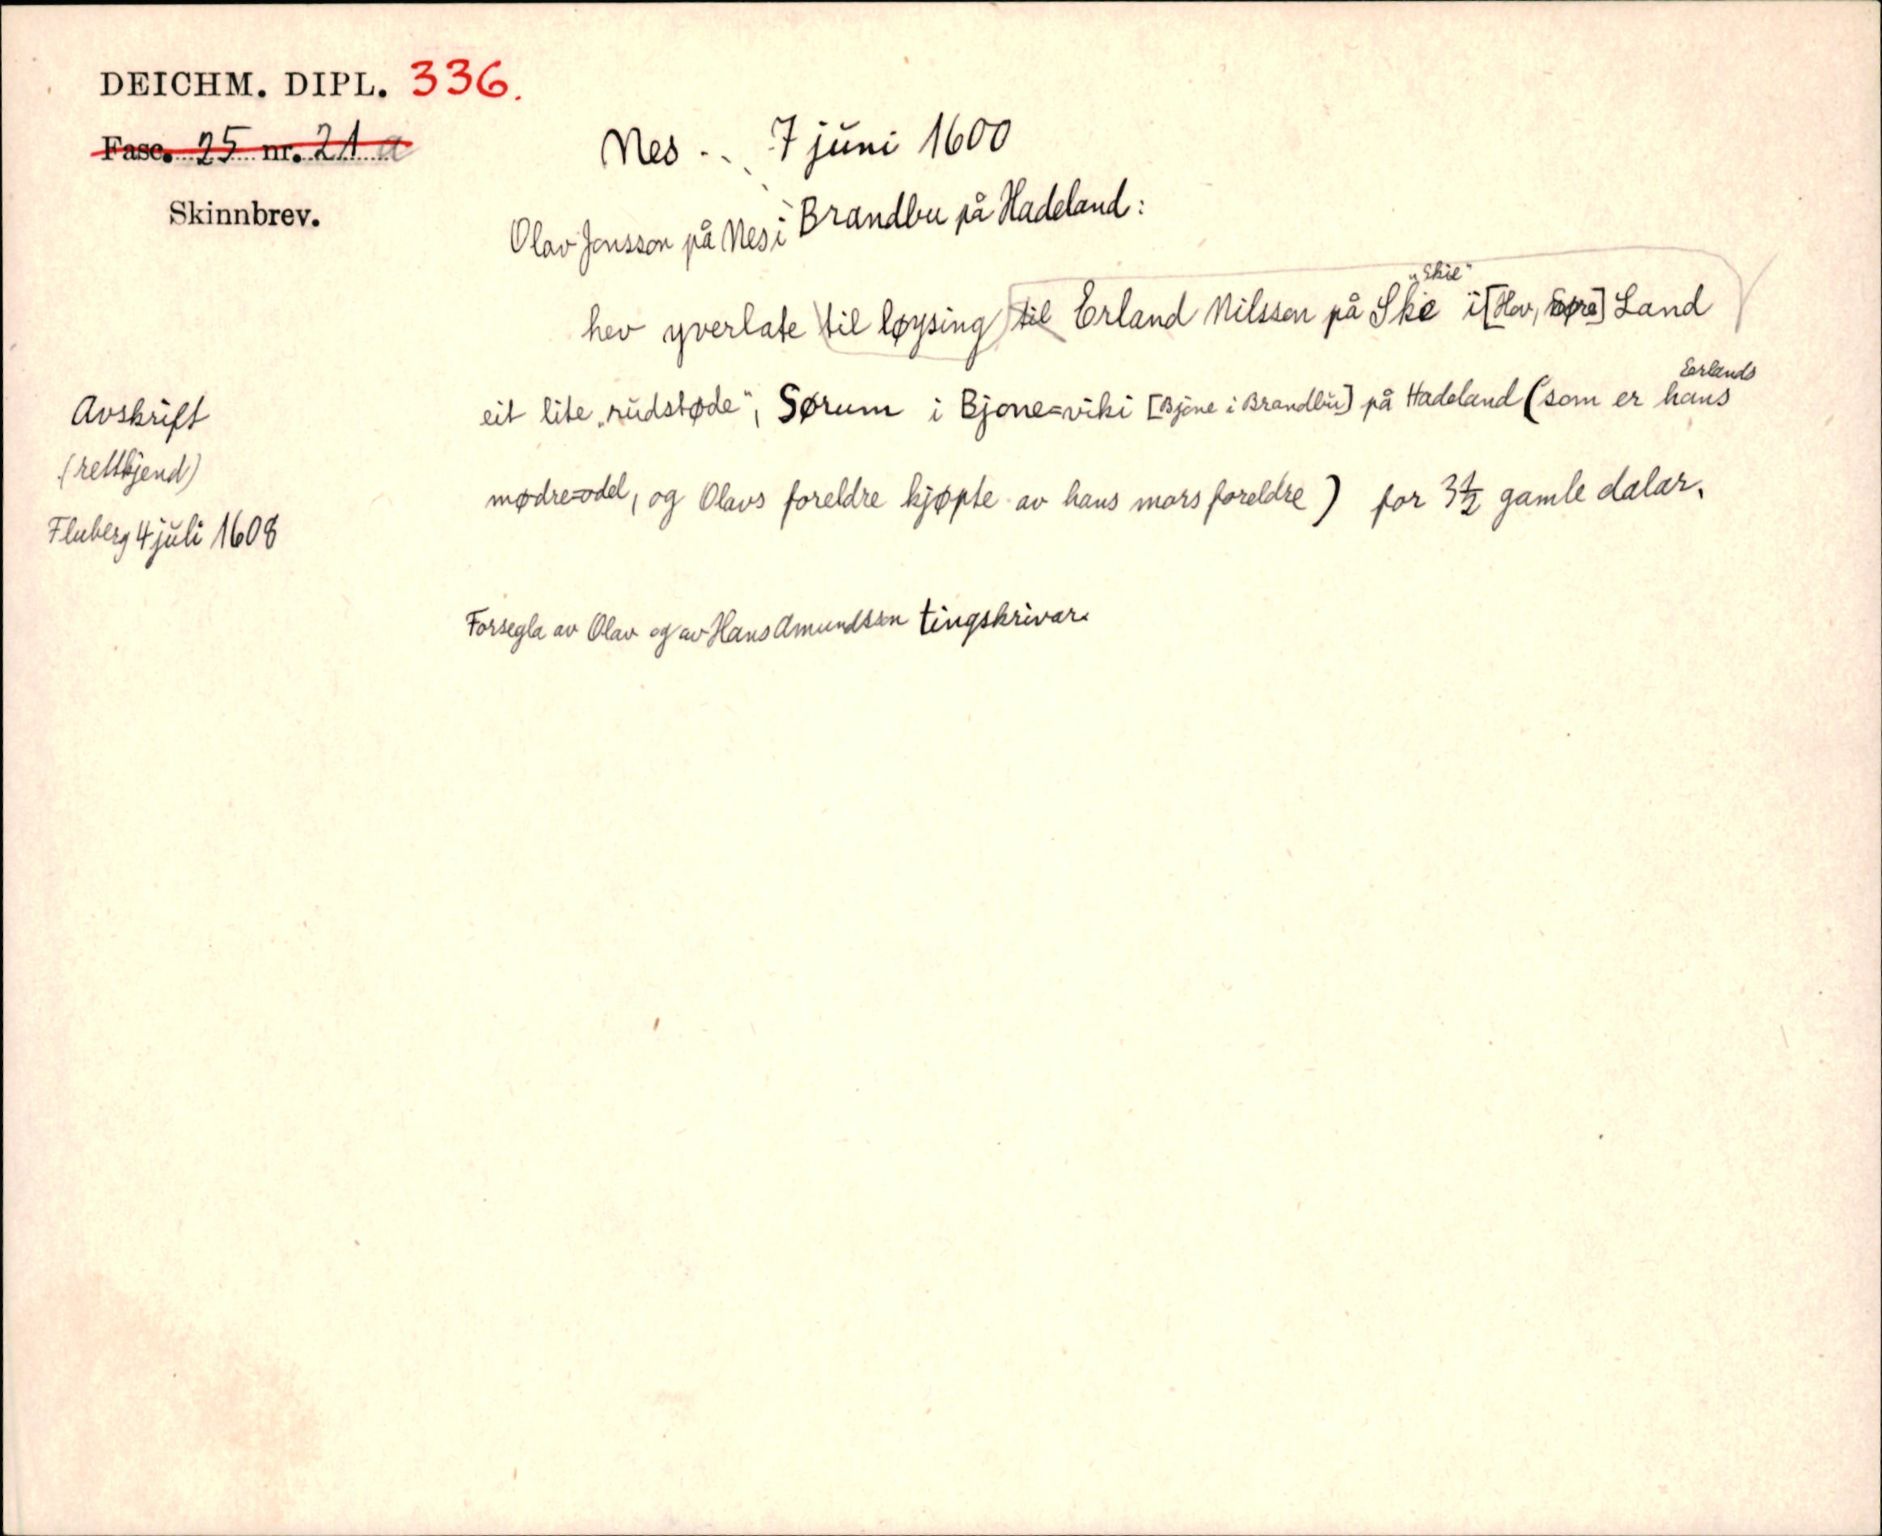 DEICHM. DIPL. 336.
Fasc. 25 nr. 21 a
Skinnbrev.
Nes . . 7 juni 1600
Olav Jonsson på Nes i Brandbu på Hadeland:
"Skie"
hev yverlate til løysing til Erland Nilsson på Ske i [Hov, Søre] Land
Erlands
eit lite „rudstøde", Sørum i Bjone=viki [Bjone i Brandbu] på Hadeland (som er hans
mødre=odel, og Olavs foreldre kjøpte av hans mors foreldre) for 3½ gamle dalar.
Avskrift
(rettkjend)
Fluberg 4 juli 1608
Forsegla av Olav og av Hans Amundsson tingskrivar.